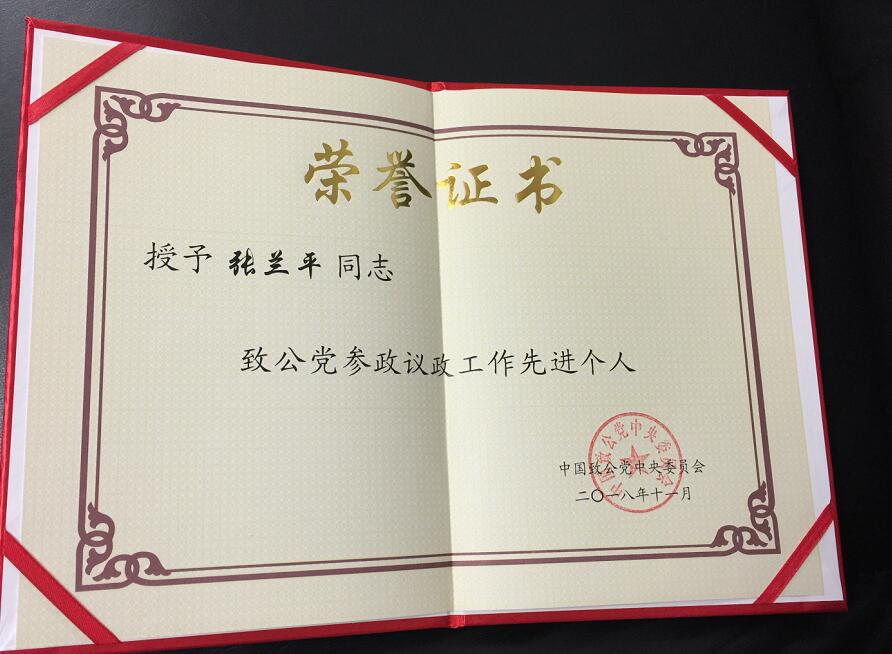 荣誉证书
授予 张兰平 同志
致公党参政议政工作先进个人
中国致公党中央委员会
中国致公党中央委员会
二〇一八年十一月